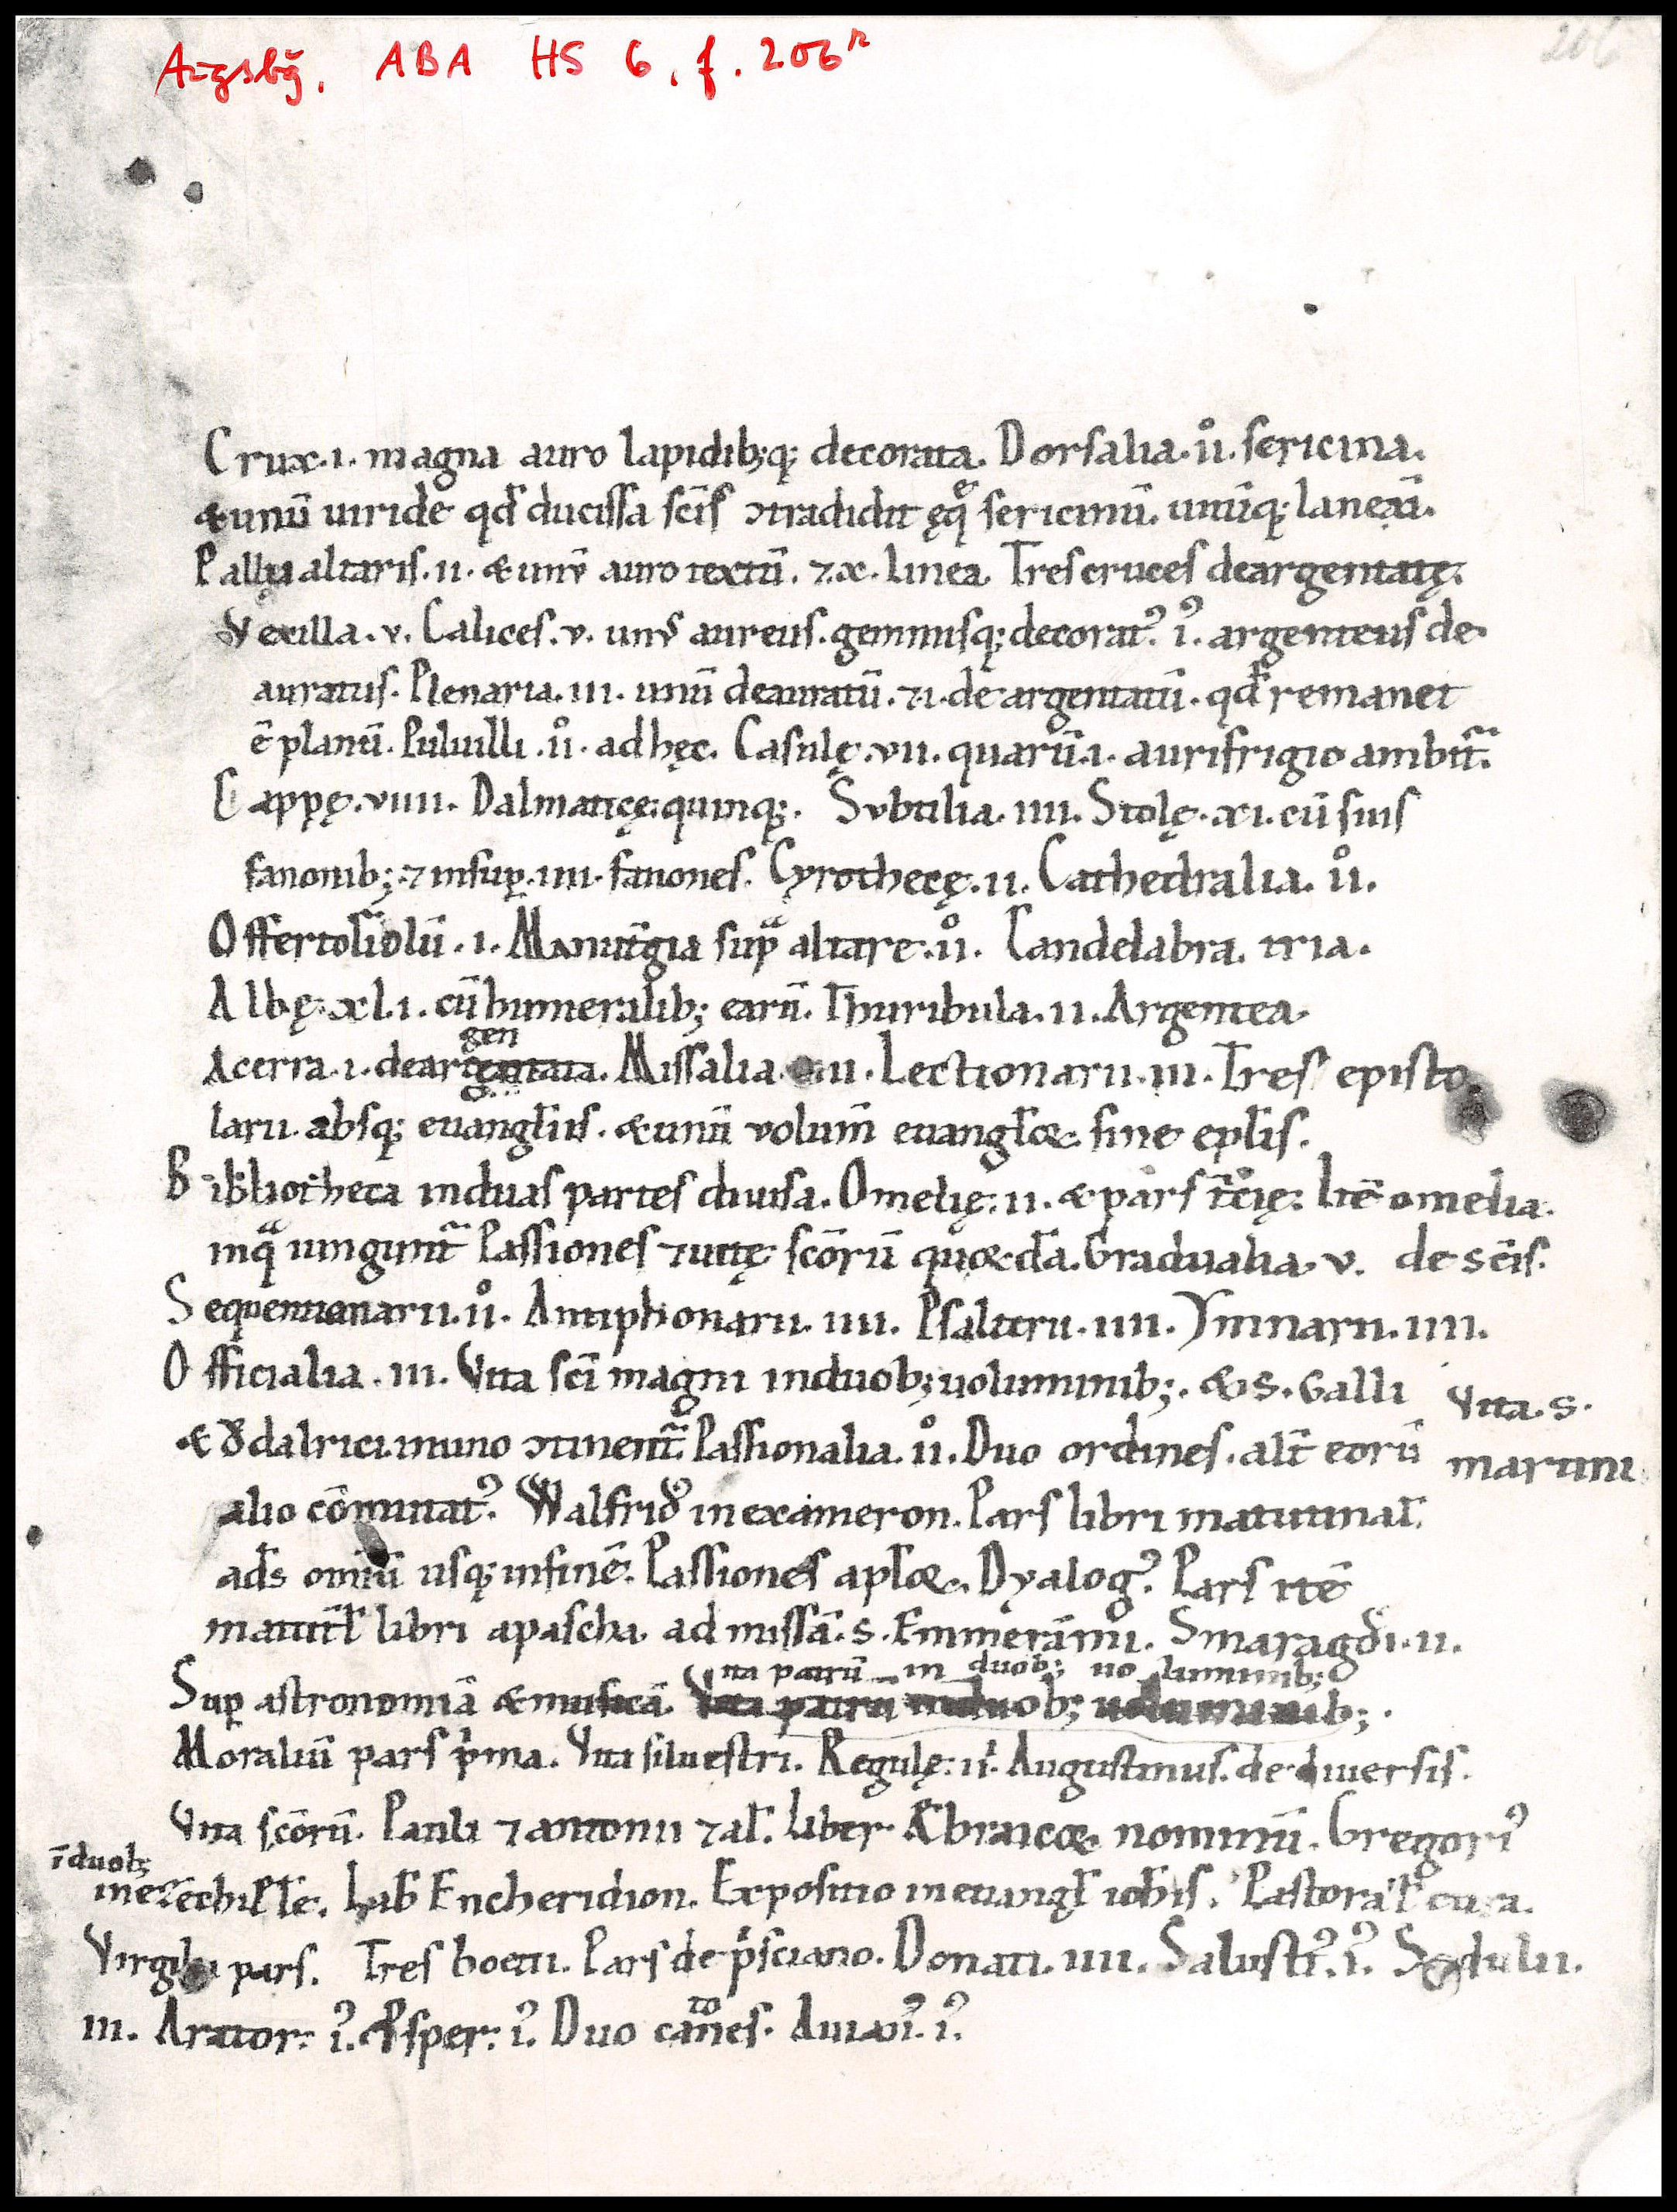 Augsbg. ABA HS 6, f. 206r
206
Crux .i. magna auro lapidib;q; decorata. Dorsalia .ii. sericina.
& unū uiride qd̄ ducissa sc̄is ↄtradidit ęq; sericinū. unūq; laneū.
Pallia altaris .ii. & unū auro textū. ⁊ .x. linea. Tres cruces deargentatę.
Vexilla .v. Calices .v. unꝰ aureus. gemmisq; decoratꝰ. iꝰ. argenteus de
auratus. Plenaria .iii. unū deauratū. ⁊ .i. deargentatū. qd̄ remanet
ē planū. Puluilli .ii. ad hęc. Casulę .vii. quarū .i. aurifrigio ambit̄.
Cappę .viiii. Dalmaticę quinq;. Svbtilia .iiii. Stolę .xi. cū suis
fanonib; ⁊ insup̱ .iiii. fanones. Cyrothecę .ii. Cathedralia .ii.
Offertoriolū .i. Manut̄gia sup̱ altare .ii. Candelabra. tria.
Albę .xl.i. cū humeralib; earū. Thuribula .ii. Argentea.
gen
Acerra .i. deargentata. Missalia .ii. Lectionarii .iii. Tres episto
larii absq; euangl̄iis. & unū volum̄ euangl̄ꝝ sine epl̄is.
Bibliotheca induas partes diuisa. Omelię .ii. & pars t̄cię. Itē omelia.
inq iungunt̄ Passiones ⁊ uitę sc̄orū quoꝝdā. Gradualia .v. de sc̄is.
Sequentionarii .ii. Antiphonarii .iiii. Psalterii .iiii. Ymnarii .iiii.
Officialia .iii. Vita sc̄i magni induob; uoluminib;. & s. Galli
Vita. s.
martini
& Ǒdalrici inuno ↄtinent̄. Passionalia .ii. Duo ordines. alt̄ eorū
alio cōmutatꝰ. Walfridꝰ in exameron. Pars libri matutinal̄.
ads omiū usq; infinē. Passiones apl̄ꝝ. Dyalogꝰ. Pars itē
matut̄l libri apascha ad missā. s. Emmerāmi. Smaragdi .ii.
ita patrū in duob; uo luminib;
Sup̱ astronomiā & musicā. Vita patrū induob; uoluminib;.
Moraliū pars p̄ma. Vita siluestri. Regulę .ii. Augustinus. de diuersis.
Vita sc̄orū. Pauli ⁊ antonii ⁊ al̄. Liber Ębraicoꝝ nominū. Gregoriꝰ
īduob;
inezechihel̄e. Lib̄ Encheridion. Expositio in euangl̄ ioh̄is. Pastoral̄ cura.
Virgilii pars. Tres boetii. Pars de p̄sciano. Donati .iiii. Salustiꝰ. iꝰ. Sedulii.
iii. Arator. iꝰ. Ꝓsper. iꝰ. Duo catōnes. Auianꝰ. iꝰ.